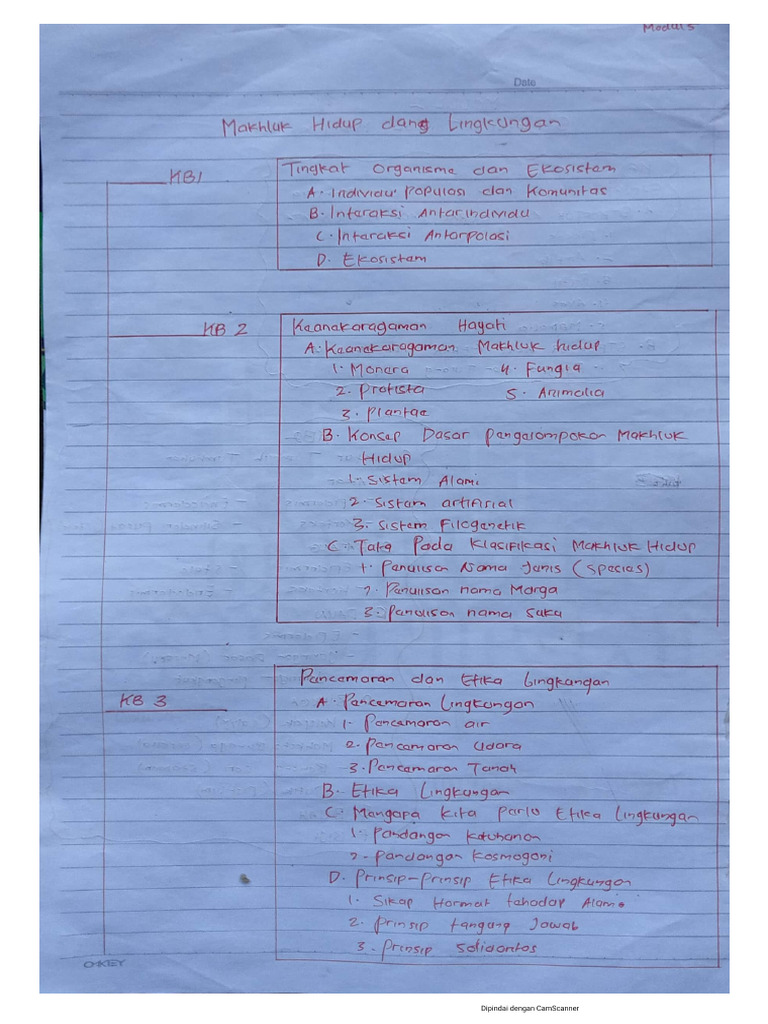 Modul 5
Date
Makhluk Hidup dang Lingkungan
KB1
Tingkat Organisme dan Ekosistem
A. Individu populasi dan Komunitas
B. Interaksi Antarindividu
C. Interaksi Antarpolasi
D. Ekosistem
KB 2
Keanekaragaman Hayati
A. Keanekaragaman Makhluk hidup
1. Monera 4. Fungia
2. Protista 5. Animalia
3. Plantae
B. Konsep Dasar Pengelompokan Makhluk
Hidup
1. Sistem Alami
2. Sistem artifisial
3. Sistem Filogenetik
C. Tata Pada Klasifikasi Makhluk Hidup
1. Penulisan Nama Jenis (Species)
2. Penulisan nama Marga
3. Penulisan nama Suku
KB 3
Pencemaran dan Etika Lingkungan
A. Pencemaran Lingkungan
1. Pencemaran air
2. Pencemaran Udara
3. Pencemaran Tanah
B. Etika Lingkungan
C. Mengapa Kita Perlu Etika Lingkungan
1. Pandangan Ketuhanan
2. Pandangan Kosmogoni
D. Prinsip-Prinsip Etika Lingkungan
1. Sikap Hormat tehadap Alam
2. Prinsip tangung Jawab
3. Prinsip Solidaritas
OKEY
Dipindai dengan CamScanner